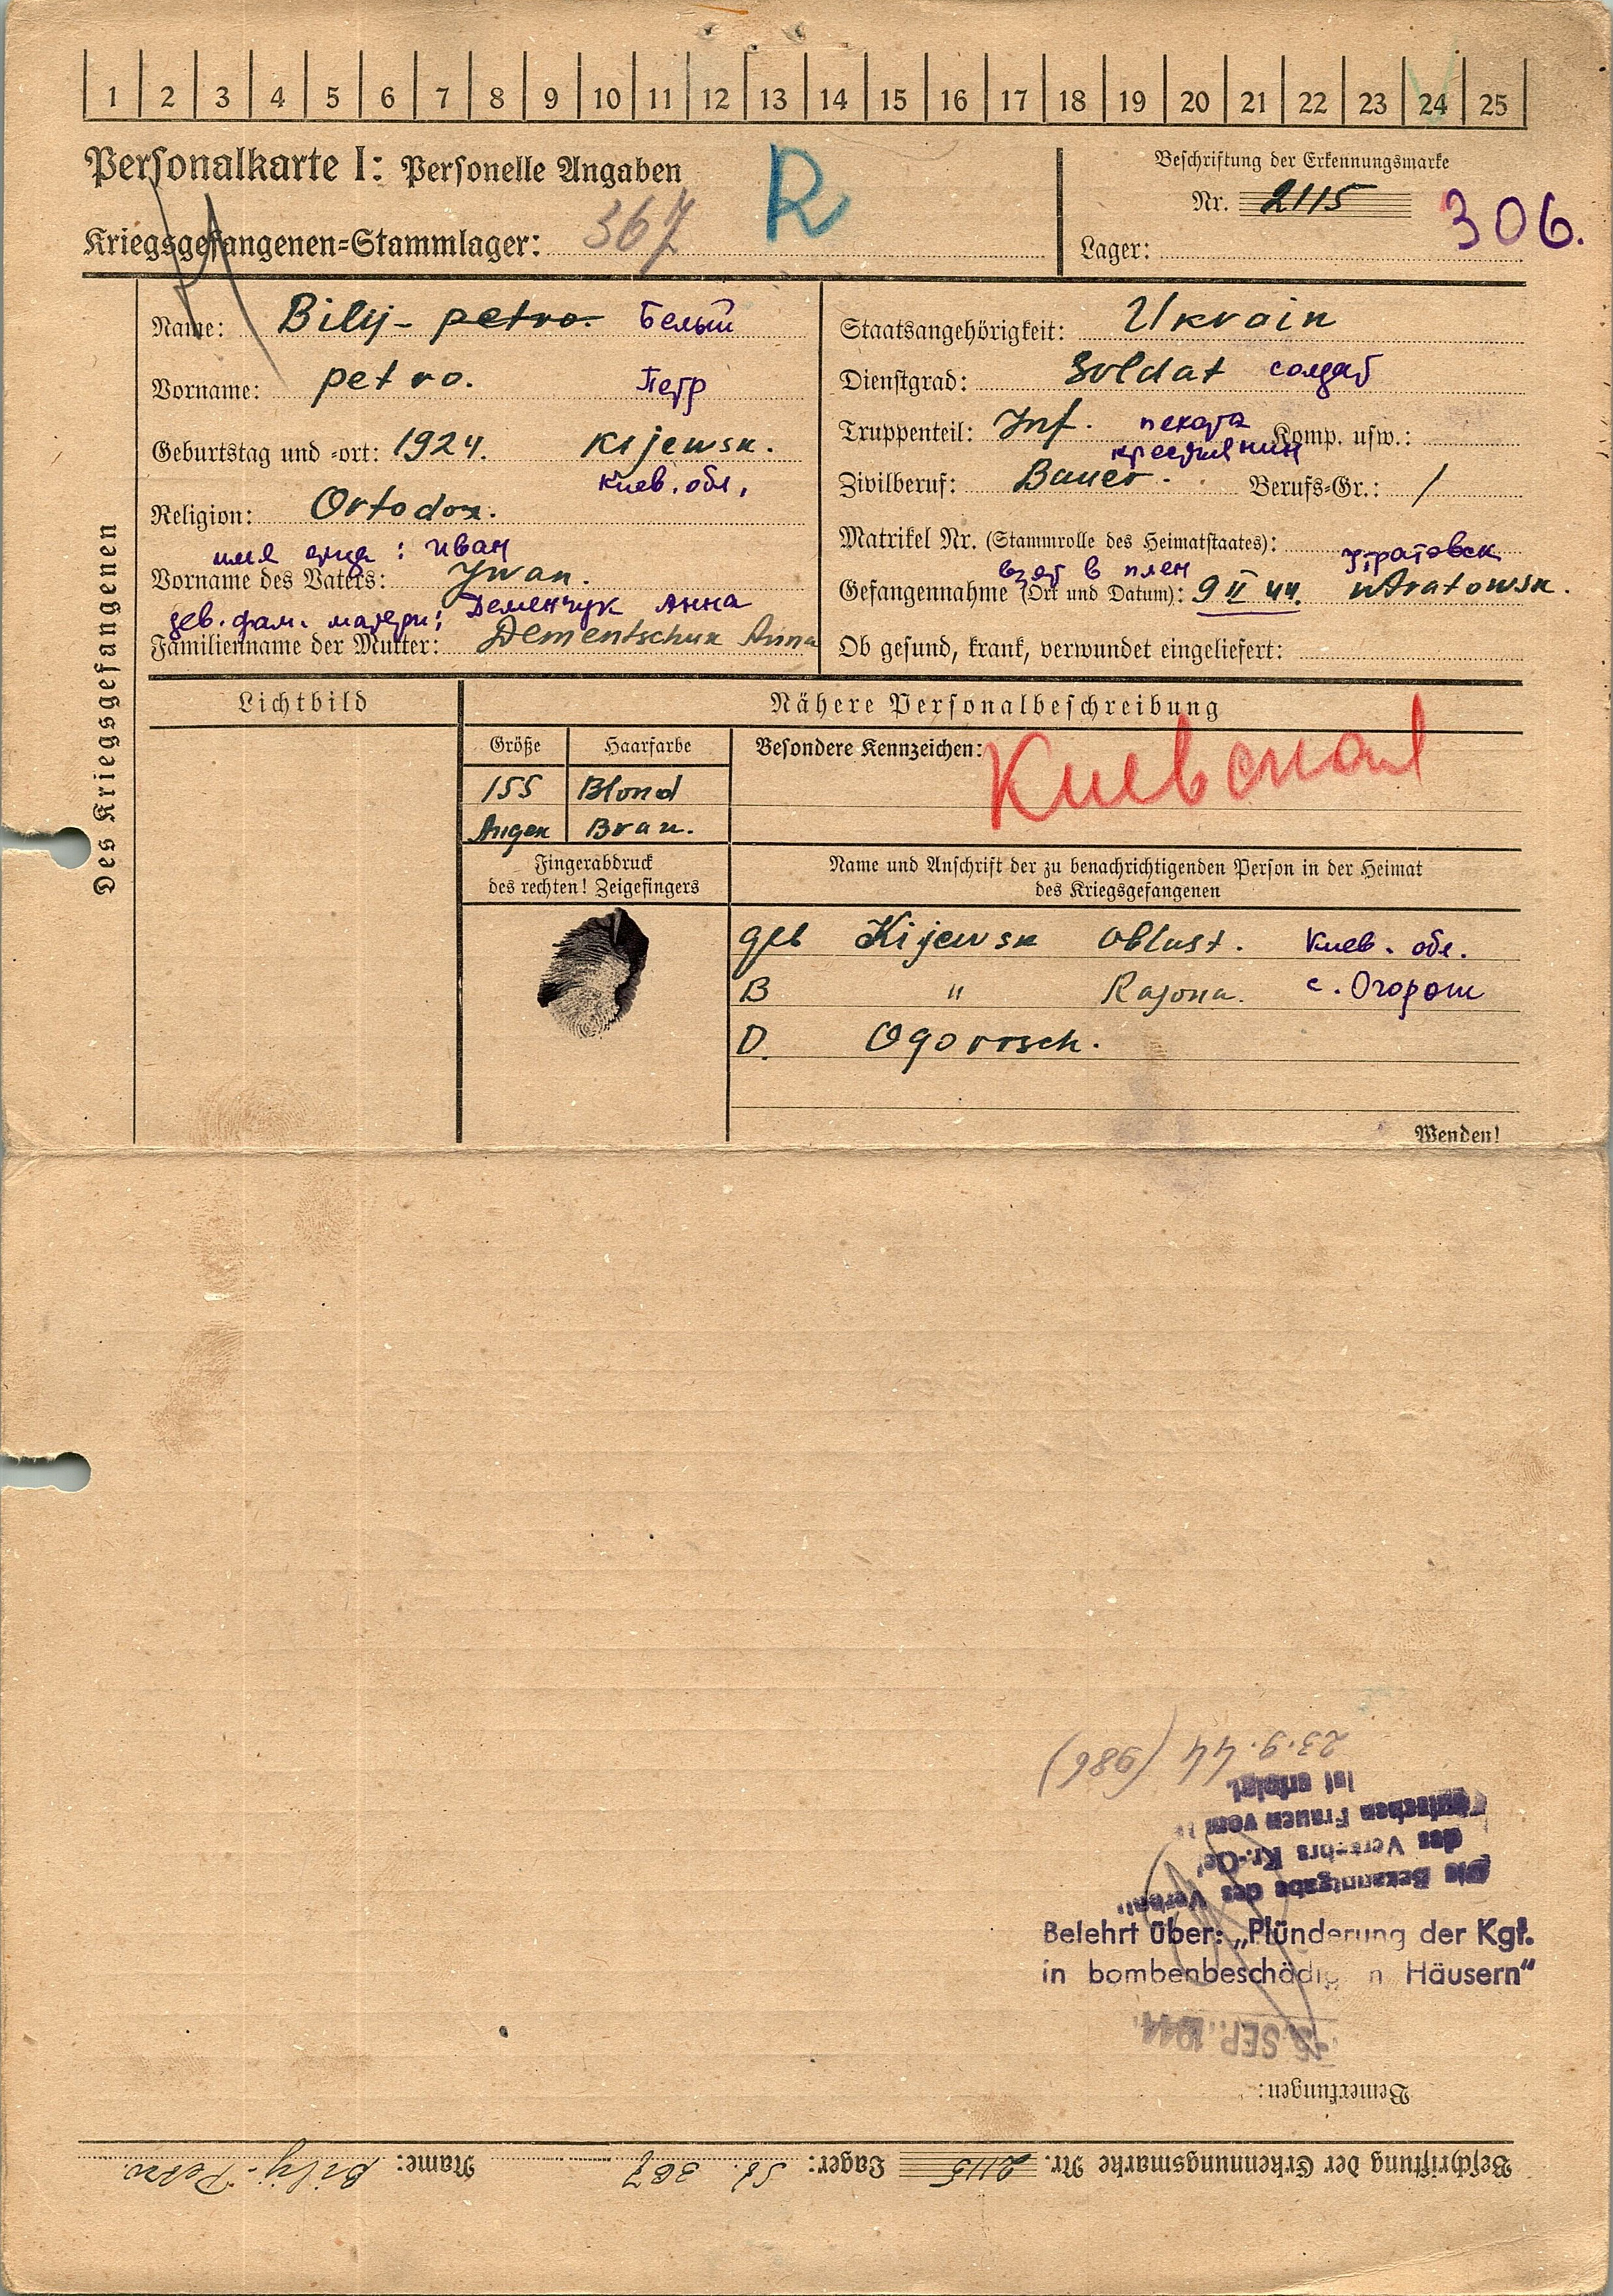 1 2 3 4 5 6 7 8 9 10 11 12 13 14 15 16 17 18 19 20 21 22 23 24 25
Personalkarte I: Personelle Angaben
R
Beschriftung der Erkennungsmarke
Nr. 2115
306.
Kriegsgefangenen=Stammlager: 367
Lager:
Des Kriegsgefangenen
Name: Bilyj - petro. Белый
Vorname: petro. Петр
Geburtstag und =ort: 1924. Kijewsk.
Киев. обл.
Religion: Ortodox.
имя отца: Иван
Vorname des Vaters: Jwan.
дев. фам. матери: Деменчук Анна
Familienname der Mutter: Dementschuk Anna
Staatsangehörigkeit: Ukrain
Dienstgrad: Soldat солдат
Truppenteil: Inf. пехота Komp. usw.:
крестьянин
Zivilberuf: Bauer. Berufs=Gr.: /
Matrikel Nr. (Stammrolle des Heimatstaates):
взят в плен
Gefangennahme (Ort und Datum): 9 II 44.
Ob gesund, krank, verwundet eingeliefert:
Lichtbild
Nähere Personalbeschreibung
Größe Haarfarbe Besondere Kennzeichen:
155 Blond
Augen Braun.
Киевская
Fingerabdruck
des rechten! Zeigefingers
Name und Anschrift der zu benachrichtigenden Person in der Heimat
des Kriegsgefangenen
geb Kijewsk Oblast. Киев. обл.
B " Rajona. с. Огорош
D. Ogorosch.
Wenden!
23.9.44 (986)
ist erfolgt
Frauen vom
des Verkehrs Kr.-Ge
Die Bekanntgabe des Verbot
Belehrt über: „Plünderung der Kgf.
in bombenbeschädigten Häusern"
SEP. 1944
Bemerkungen:
Beschriftung der Erkennungsmarke Nr. 2115 Lager: St. 367 Name: Bilyj - Petro